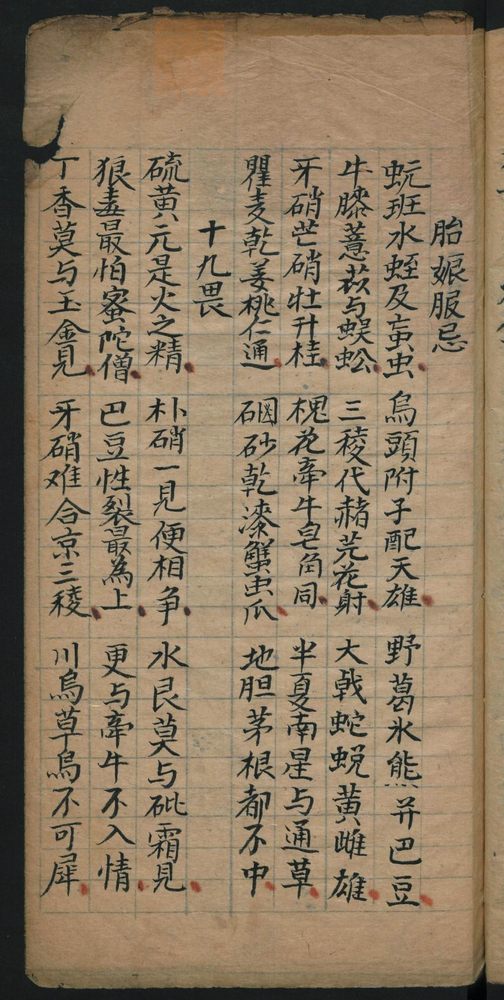 胎娠服忌
蚖班水蛭及䖟虫 烏頭附子配天雄 野葛氷熊并巴豆
牛膝薏苡与蜈蚣 三稜代赭芫花射 大戟蛇蜕黄雌雄
牙硝芒硝牡丹桂 槐花牽牛皂角同 半夏南星与通草
瞿麦乾姜桃仁通 硇砂乾漆蟹虫瓜 地胆茅根都不中
十九畏
硫黄元是火之精 朴硝一見便相争 水艮莫与砒霜見
狼毒最怕蜜陀僧 巴豆性裂最為上 更与牽牛不入情
丁香莫与玉金見 牙硝难合京三稜 川烏草烏不可犀